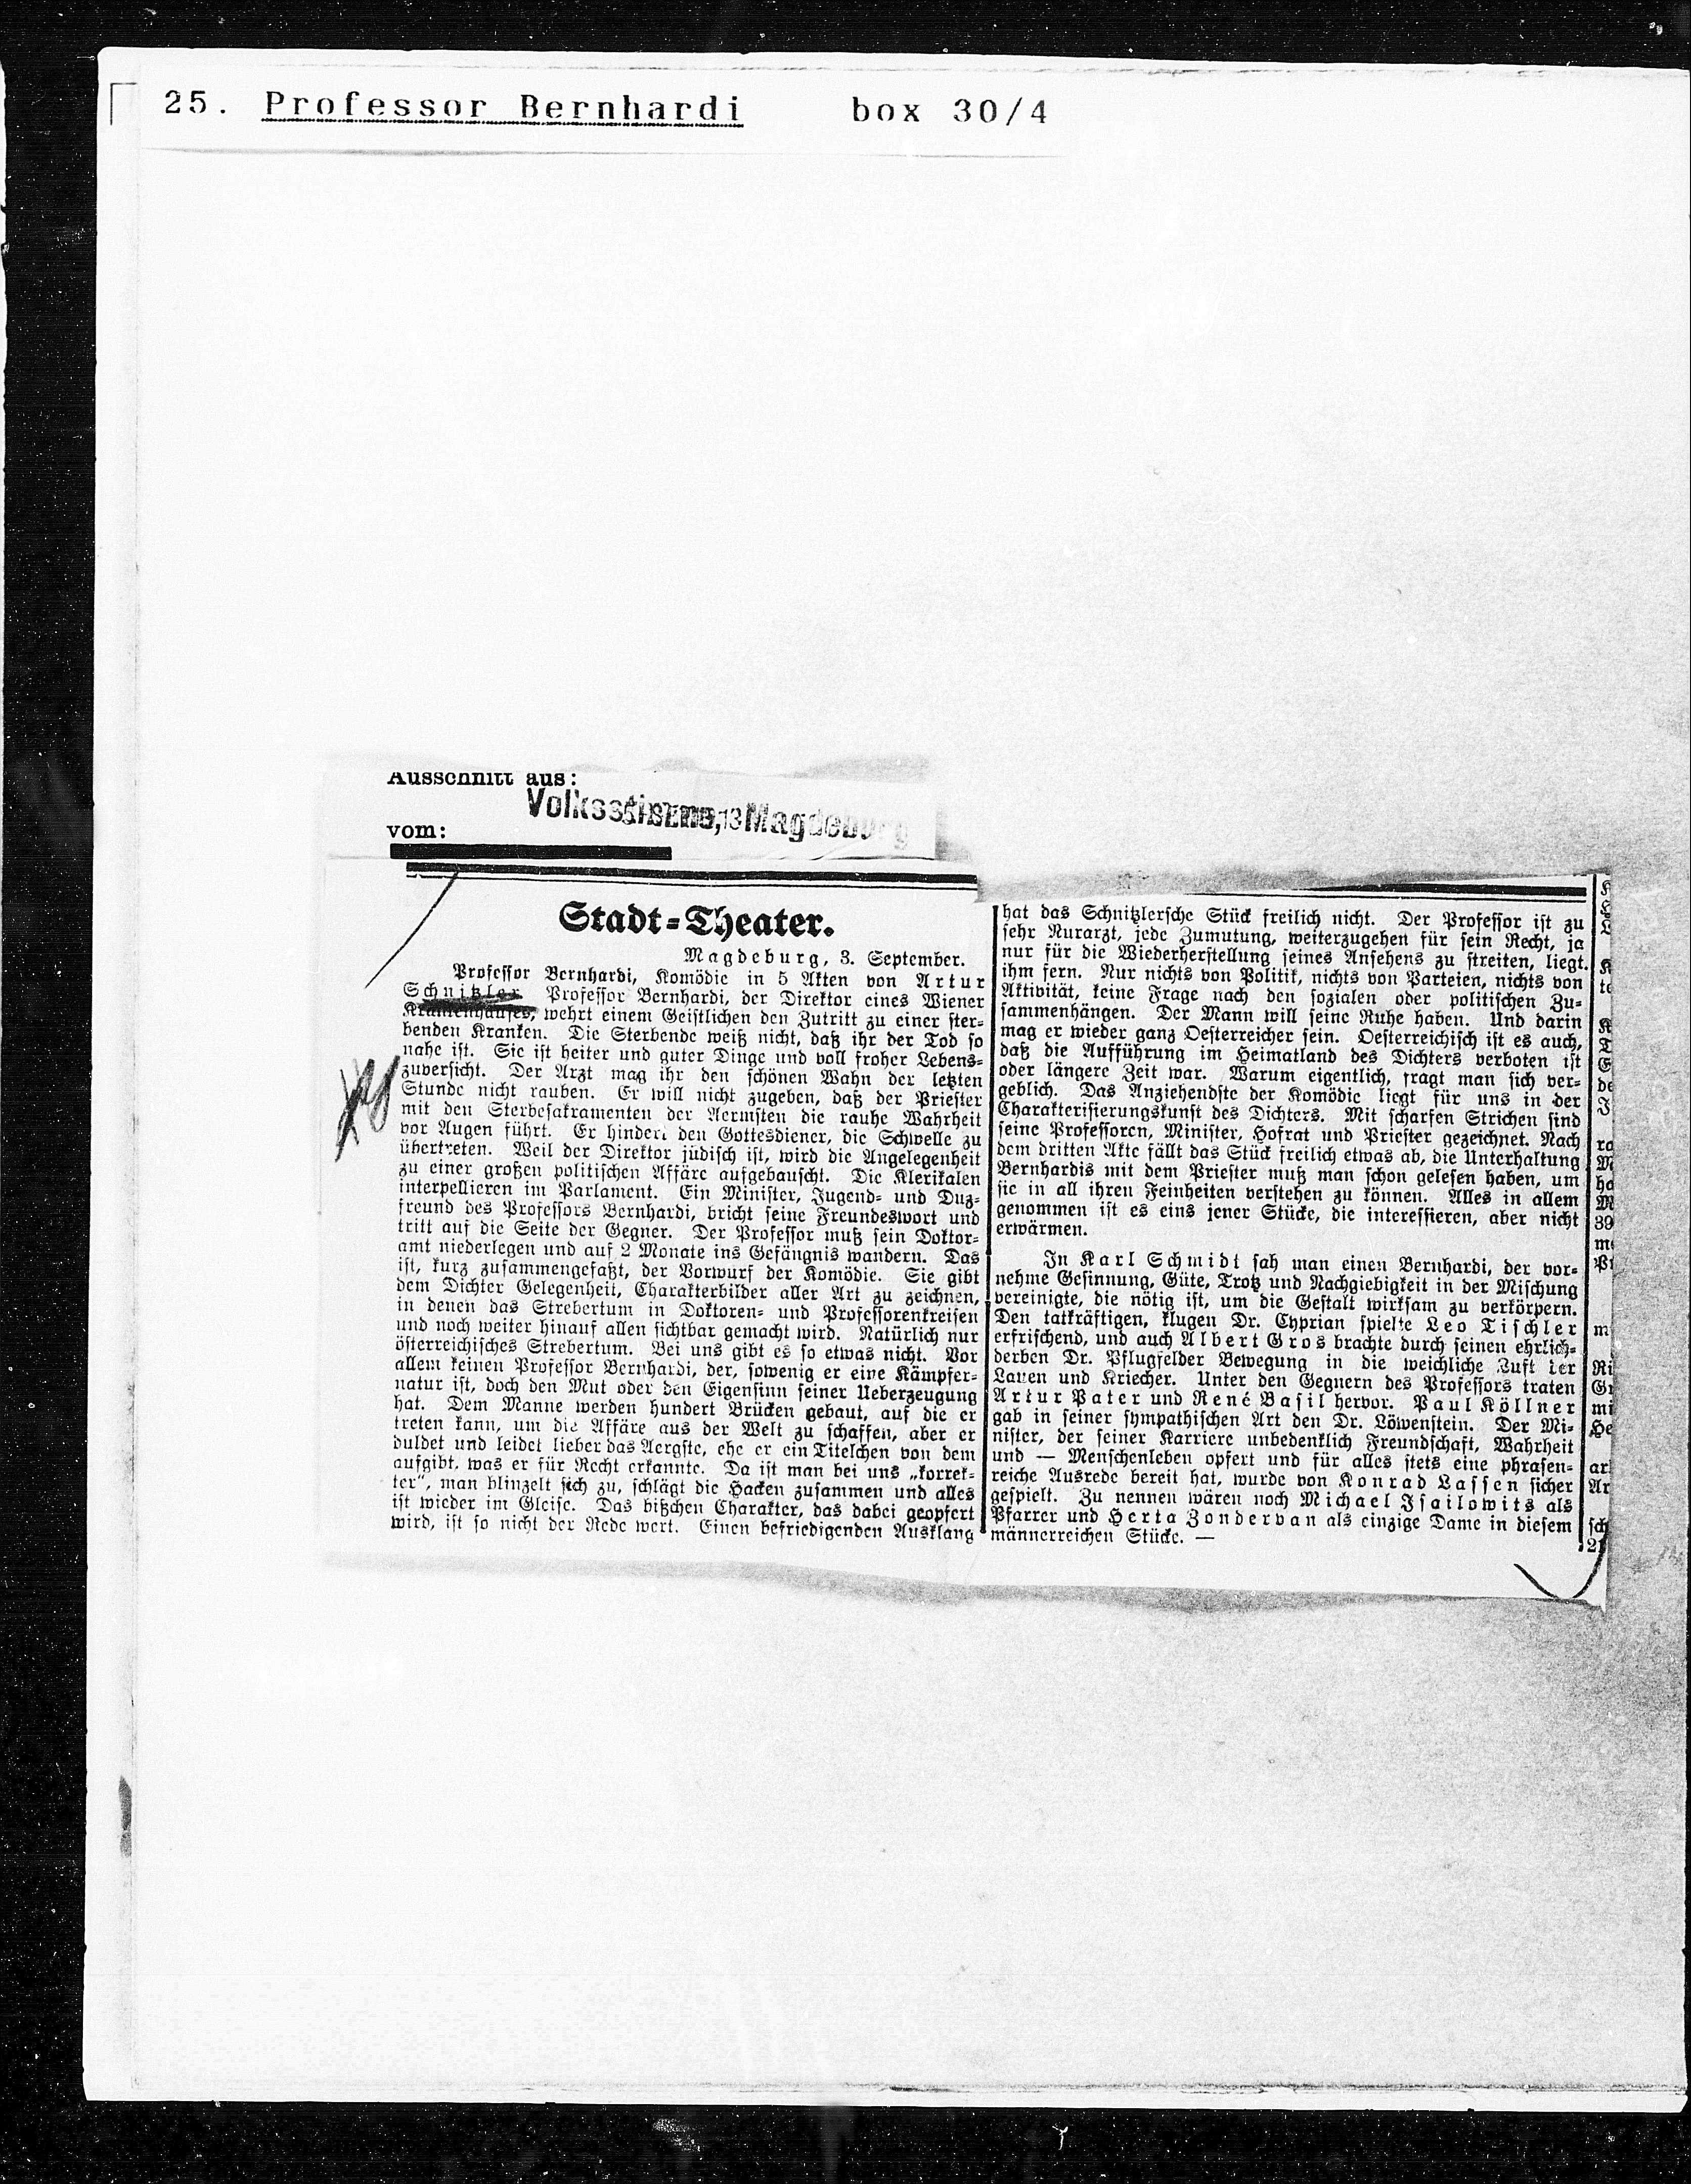 25. Professor Bernhardi box 30/4
Ausschnitt aus:
Volksstimme, Magdeburg
vom:
Stadt-Theater.
Magdeburg, 3. September.
Professor Bernhardi, Komödie in 5 Akten von Artur
Schnitzler Professor Bernhardi, der Direktor eines Wiener
Krankenhauses, wehrt einem Geistlichen den Zutritt zu einer ster-
benden Kranken. Die Sterbende weiß nicht, daß ihr der Tod so
nahe ist. Sie ist heiter und guter Dinge und voll froher Lebens-
zuversicht. Der Arzt mag ihr den schönen Wahn der letzten
Stunde nicht rauben. Er will nicht zugeben, daß der Priester
mit den Sterbesakramenten der Aermsten die rauhe Wahrheit
vor Augen führt. Er hindert den Gottesdiener, die Schwelle zu
übertreten. Weil der Direktor jüdisch ist, wird die Angelegenheit
zu einer großen politischen Affäre aufgebauscht. Die Klerikalen
interpellieren im Parlament. Ein Minister, Jugend- und Duz-
freund des Professors Bernhardi, bricht seine Freundeswort und
tritt auf die Seite der Gegner. Der Professor muß sein Doktor-
amt niederlegen und auf 2 Monate ins Gefängnis wandern. Das
ist, kurz zusammengefaßt, der Vorwurf der Komödie. Sie gibt
dem Dichter Gelegenheit, Charakterbilder aller Art zu zeichnen,
in denen das Strebertum in Doktoren- und Professorenkreisen
und noch weiter hinauf allen sichtbar gemacht wird. Natürlich nur
österreichisches Strebertum. Bei uns gibt es so etwas nicht. Vor
allem keinen Professor Bernhardi, der, sowenig er eine Kämpfer-
natur ist, doch den Mut oder den Eigensinn seiner Ueberzeugung
hat. Dem Manne werden hundert Brücken gebaut, auf die er
treten kann, um die Affäre aus der Welt zu schaffen, aber er
duldet und leidet lieber das Aergste, ehe er ein Titelchen von dem
aufgibt, was er für Recht erkannte. Da ist man bei uns „korrek-
ter“, man blinzelt sich zu, schlägt die Hacken zusammen und alles
ist wieder im Gleise. Das bißchen Charakter, das dabei geopfert
wird, ist so nicht der Rede wert. Einen befriedigenden Ausklang
hat das Schnitzlersche Stück freilich nicht. Der Professor ist zu
sehr Nurarzt, jede Zumutung, weiterzugehen für sein Recht, ja
nur für die Wiederherstellung seines Ansehens zu streiten, liegt
ihm fern. Nur nichts von Politik, nichts von Parteien, nichts von
Aktivität, keine Frage nach den sozialen oder politischen Zu-
sammenhängen. Der Mann will seine Ruhe haben. Und darin
mag er wieder ganz Oesterreicher sein. Oesterreichisch ist es auch,
daß die Aufführung im Heimatland des Dichters verboten ist
oder längere Zeit war. Warum eigentlich, fragt man sich ver-
geblich. Das Anziehendste der Komödie liegt für uns in der
Charakterisierungskunst des Dichters. Mit scharfen Strichen sind
seine Professoren, Minister, Hofrat und Priester gezeichnet. Nach
dem dritten Akte fällt das Stück freilich etwas ab, die Unterhaltung
Bernhardis mit dem Priester muß man schon gelesen haben, um
sie in all ihren Feinheiten verstehen zu können. Alles in allem
genommen ist es eins jener Stücke, die interessieren, aber nicht
erwärmen.
In Karl Schmidt sah man einen Bernhardi, der vor-
nehme Gesinnung, Güte, Trotz und Nachgiebigkeit in der Mischung
vereinigte, die nötig ist, um die Gestalt wirksam zu verkörpern.
Den tatkräftigen, klugen Dr. Cyprian spielte Leo Tischler
erfrischend, und auch Albert Gros brachte durch seinen ehrlich-
derben Dr. Pflugfelder Bewegung in die weichliche Luft der
Lauen und Kriecher. Unter den Gegnern des Professors traten
Artur Pater und René Basil hervor. Paul Köllner
gab in seiner sympathischen Art den Dr. Löwenstein. Der Mi-
nister, der seiner Karriere unbedenklich Freundschaft, Wahrheit
und — Menschenleben opfert und für alles stets eine phrasen-
reiche Ausrede bereit hat, wurde von Konrad Lassen sicher
gespielt. Zu nennen wären noch Michael Isailowits als
Pfarrer und Herta Zondervan als einzige Dame in diesem
männerreichen Stücke. —